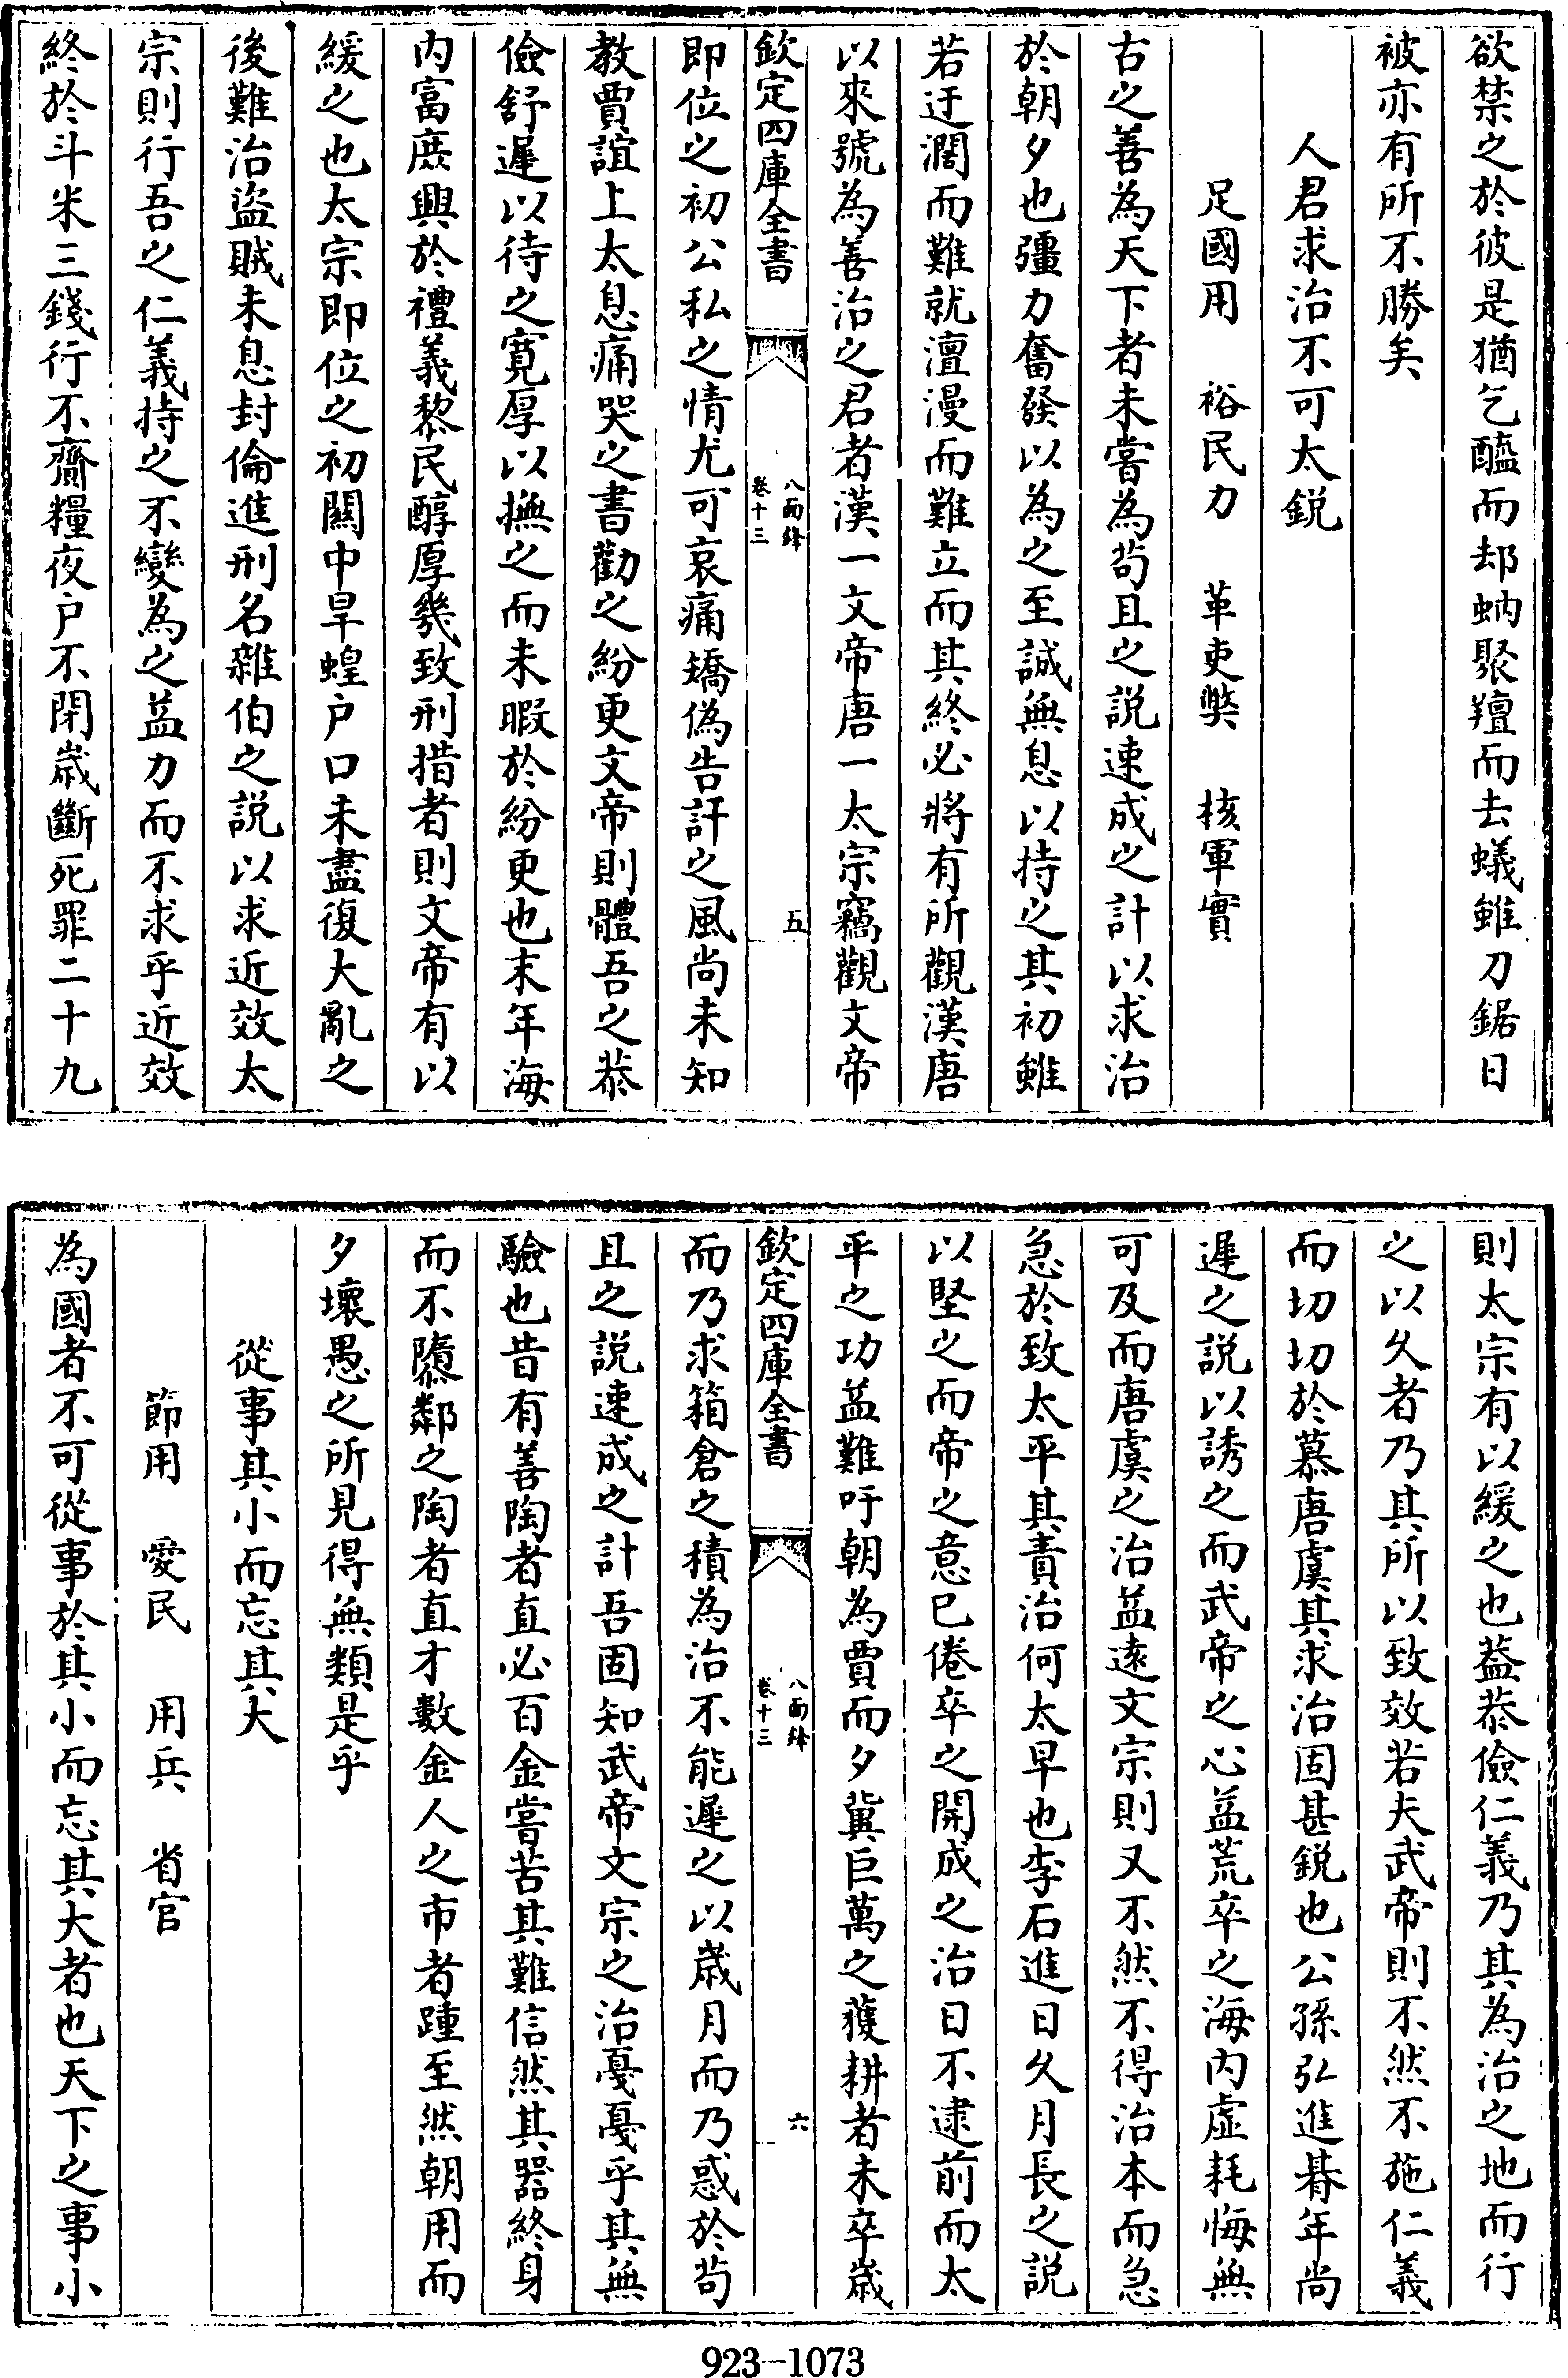 欲禁之於彼是猶乞醯而却蚋聚羶而去蟻雖刀鋸日
被亦有所不勝矣
人君求治不可太鋭
足國用 裕民力 革吏弊 核軍實
古之善為天下者未嘗為苟且之説速成之計以求治
於朝夕也彊力奮發以為之至誠無息以持之其初雖
若迂濶而難就澶漫而難立而其終必將有所觀漢唐
以來號為善治之君者漢一文帝唐一太宗竊觀文帝
欽定四庫全書 八面鋒 卷十三 五
即位之初公私之情尤可哀痛矯偽告訐之風尚未知
教賈誼上太息痛哭之書勸之紛更文帝則體吾之恭
儉舒遲以待之寛厚以撫之而未暇於紛更也末年海
内富庶興於禮義黎民醇厚幾致刑措者則文帝有以
緩之也太宗即位之初關中旱蝗户口未盡復大亂之
後難治盗賊未息封倫進刑名雜伯之説以求近效太
宗則行吾之仁義持之不變為之益力而不求乎近效
終於斗米三錢行不齎糧夜户不閉嵗斷死罪二十九
則太宗有以緩之也葢恭儉仁義乃其為治之地而行
之以久者乃其所以致效若夫武帝則不然不施仁義
而切切於慕唐虞其求治固甚鋭也公孫弘進朞年尚
遲之説以誘之而武帝之心益荒卒之海内虛耗悔無
可及而唐虞之治益遠文宗則又不然不得治本而急
急於致太平其責治何太早也李石進日久月長之説
以堅之而帝之意已倦卒之開成之治日不逮前而太
平之功益難吁朝為賈而夕冀巨萬之獲耕者未卒嵗
欽定四庫全書 八面鋒 卷十三 六
而乃求箱倉之積為治不能遲之以嵗月而乃惑於苟
且之説速成之計吾固知武帝文宗之治戞戞乎其無
驗也昔有善陶者直必百金嘗苦其難信然其器終身
而不隳鄰之陶者直才數金人之市者踵至然朝用而
夕壞愚之所見得無類是乎
從事其小而忘其大
節用 愛民 用兵 省官
為國者不可從事於其小而忘其大者也天下之事小
923-1073